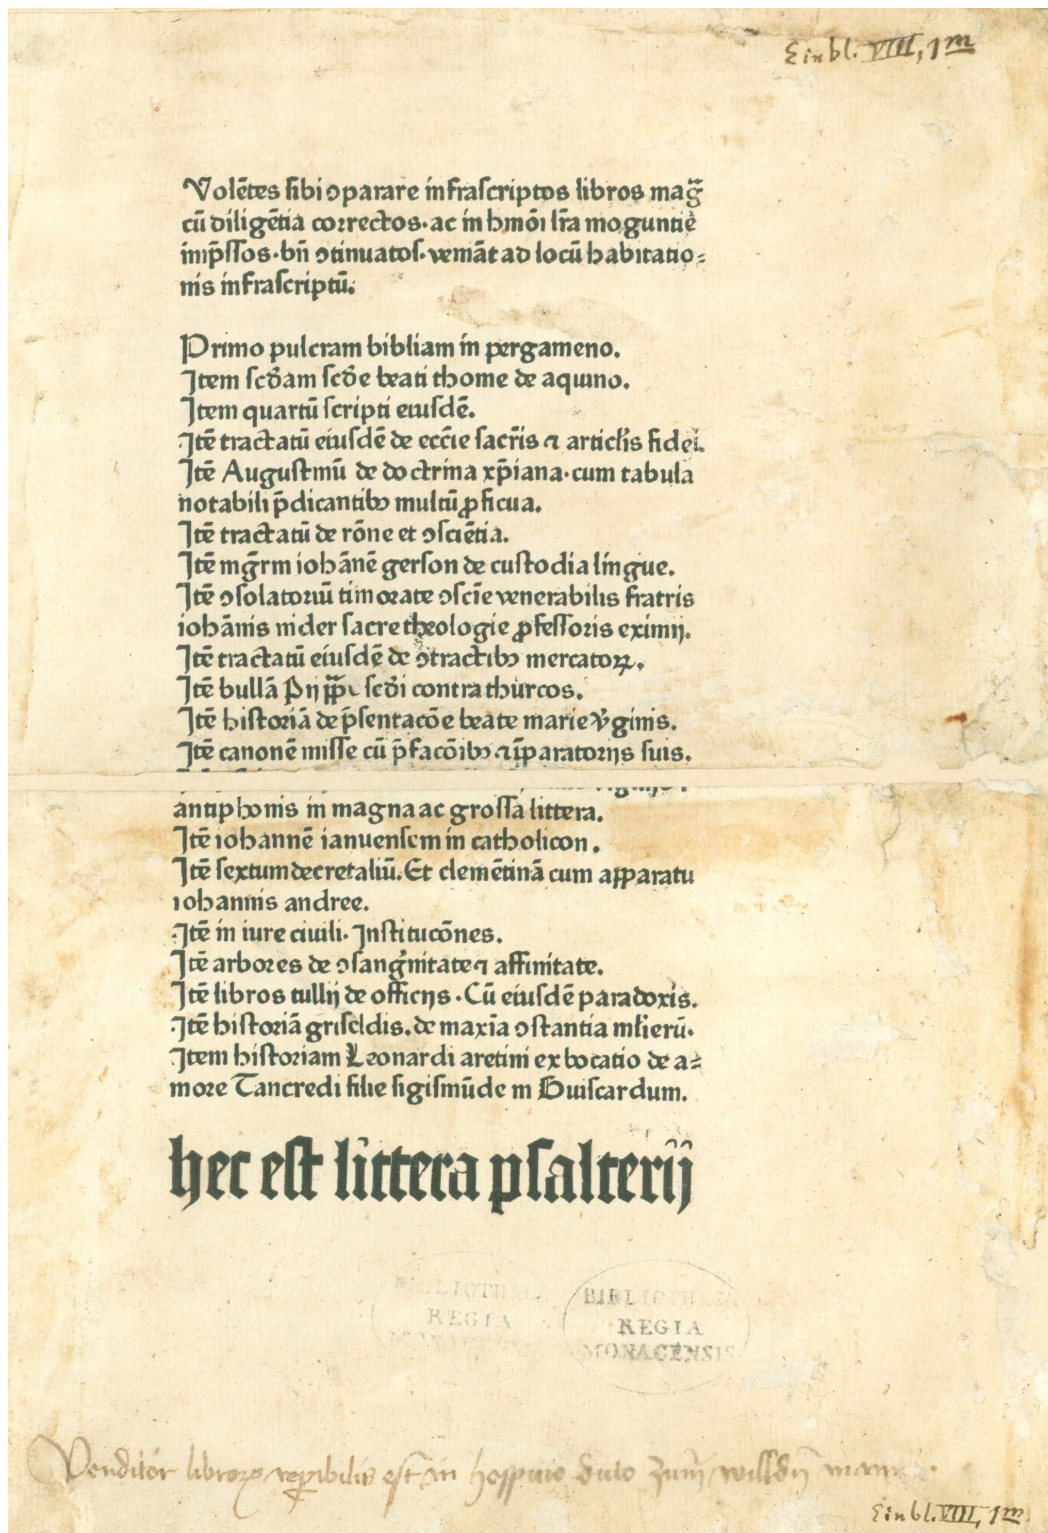 Einbl. VIII, 1 m
Volētes sibi ɔparare infrascriptos libros mag̃
cū diligētia correctos·ac in hmōi lr̄a moguntie
imp̄ssos·bn̄ ɔtinuatos·veniāt ad locū habitatio⸗
nis infrascriptū.
Primo pulcram bibliam in pergameno.
Item scd̄am scd̄e beati thome de aquino.
Item quartū scripti eiusdē.
Itē tractatū eiusdē de eccīe sacr̄is ⁊ articlīs fidei.
Itē Augustinū de doctrina xp̄iana·cum tabula
notabili p̄dicantibꝫ multū ꝓficua.
Itē tractatū de rōne et ɔsciētia.
Itē mgr̄m iohānē gerson de custodia lingue.
Itē ɔsolatoriū timorate ɔscīe venerabilis fratris
iohānis nider sacre theologie ꝓfessoris eximij.
Itē tractatū eiusdē de ɔtractibꝫ mercatoꝝ.
Itē bullā Pij pp̄e scd̄i contra thurcos.
Itē historiā de p̄sentacōe beate marie v̄ginis.
Itē canonē misse cū p̄facōibꝫ ⁊ īpparatorijs suis.
antiphonis in magna ac grossa littera.
Itē iohannē ianuensem in catholicon.
Itē sextum decretaliū. Et clemētinā cum apparatu
iohannis andree.
Itē in iure ciuili. Institucōnes.
Itē arbores de ɔsang̃nitate ⁊ affinitate.
Itē libros tullij de officijs. Cū eiusdē paradoxis.
Itē historiā griseldis. de maxīa ɔstantia mlīerū.
Item historiam Leonardi aretini ex bocatio de a⸗
more Tancredi filie sigismūde in Guiscardum.
hec est littera psalterij
BIBLIOTHECA
REGIA
MONACENSIS
BIBLIOTHECA
REGIA
MONACENSIS
Venditor libroꝝ repibilis est in hospicio dicto zum willdn̄ mann.
Einbl. VIII, 1 m